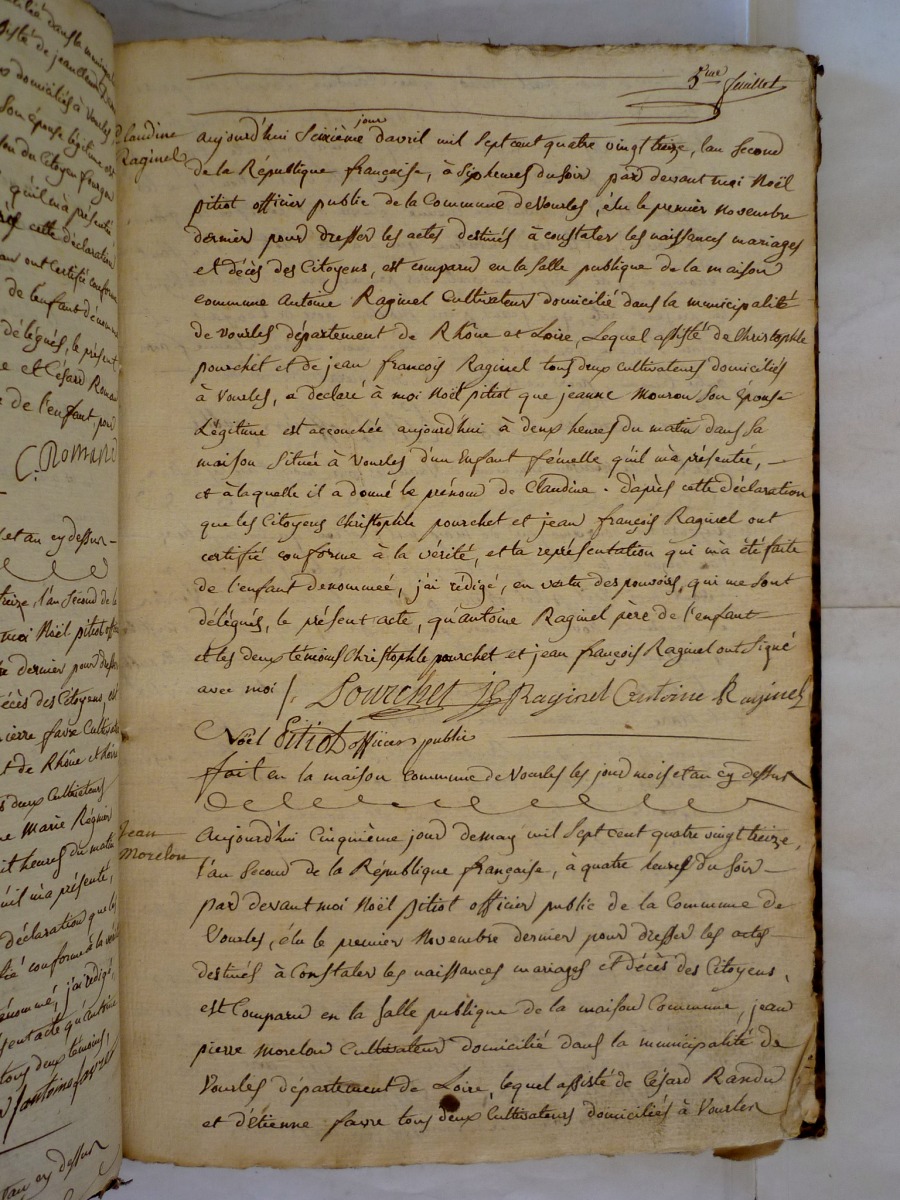 5me feuillet
Claudine
Raginel
aujourd'hui Seizième jour d'avril mil Sept cent quatre vingt treize, l'an Second
de la République française, à Six heures du Soir par devant moi Noël
pitiot officier public de la Commune de Vourles, élu le premier Novembre
dernier pour dresser les actes destinés à constater les naissances mariages
et décès des Citoyens, est comparu en la Salle publique de la maison
commune Antoine Raginel Cultivateur domicilié dans la municipalité
de Vourles département de Rhône et Loire, Lequel assisté de Christophle
pourchet et de jean françois Raginel tous deux cultivateurs domiciliés
à Vourles, a déclaré à moi Noël pitiot que jeanne Mouron Son Epouse
Légitime est accouchée aujourd'hui à deux heures du matin dans Sa
maison Située à Vourles d'un Enfant fémelle qu'il m'a présentée,
et à laquelle il a donné le prénom de Claudine. D'après cette déclaration
que les Citoyens Christophle pourchet et jean françois Raginel ont
certifié conforme à la vérité, et la représentation qui m'a été faite
de l'enfant denommeé, j'ai rédigé, en vertu des pouvoirs, qui me Sont
délégués, le présent acte, qu'antoine Raginel père de l'enfant
et les deux témoins Christophle pourchet et jean françois Raginel ont Signé
avec moi /. Pourchet jf Raginel Antoine Raginel
Noël Pitiot officier public
fait en la maison commune de Vourles les jour mois et an cy dessus
Jean
Morelon
Aujourd'hui Cinquième jour de may mil Sept cent quatre vingt treize,
l'an Second de la République française, à quatre heures du Soir
par devant moi Noël pitiot officier public de la Commune de
Vourles, élu le premier Novembre dernier pour dresser les actes
destinés à Constater les naissances mariages et décès des Citoyens,
est Comparu en la Salle publique de la maison Commune, jean
pierre Morelon Cultivateur domicilié dans la municipalité de
Vourles département de Loire, lequel assisté de César Randu
et d'étienne favre tous deux Cultivateurs domiciliés à Vourles